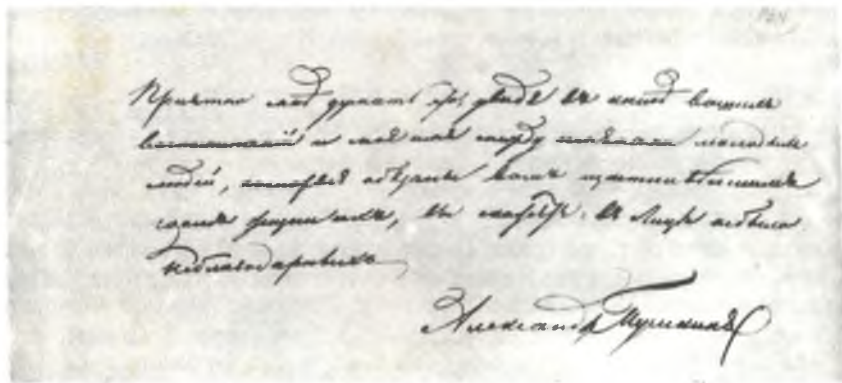 Приятно мнѣ думать что увидя въ книгѣ вашихъ
воспоминаній и мое имя между именами молодыхъ
людей, которые обязаны вамъ щастливѣйшимъ
годомъ жизни ихъ, вы скажете: въ Лицеѣ не было
неблагодарныхъ
Александръ Пушкинъ